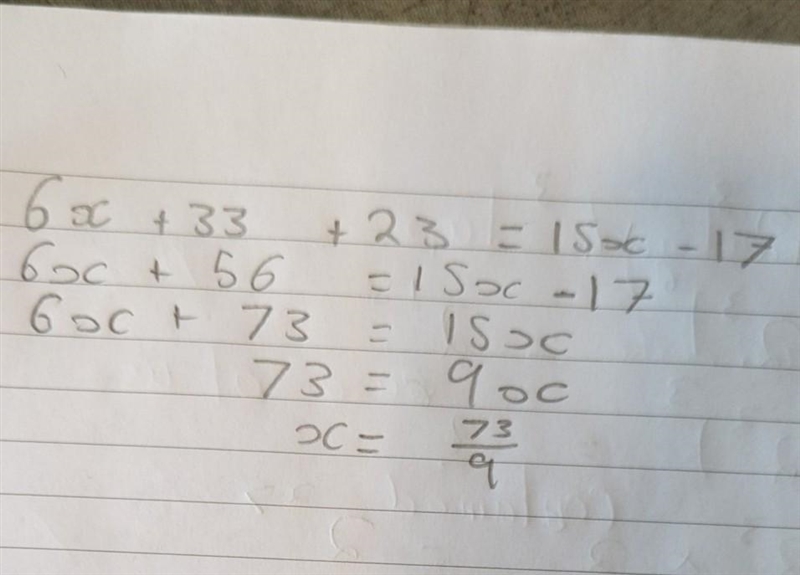 6x + 33 + 23 = 15x - 17
6x + 56 = 15x - 17
6x + 73 = 15x
73 = 9x
x = 73/9